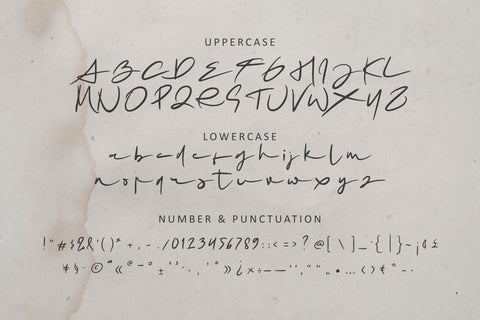 UPPERCASE
ABCDEFGHIJKL
MNOPQRSTUVWXYZ
LOWERCASE
abcdefghijklm
nopqrstuvwxyz
NUMBER & PUNCTUATION
!"#$%&'()*+,-./0123456789:;<=>?@[\]_`{|}~¡¢£